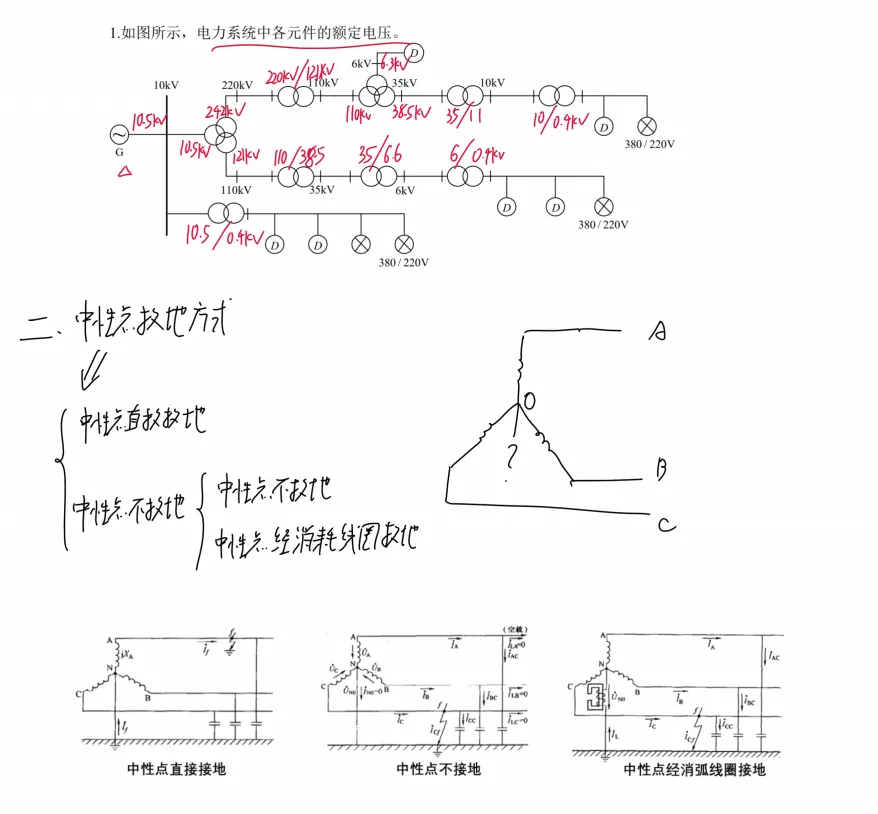 1.如图所示，电力系统中各元件的额定电压。
D
6kV
6.3kV
10kV
220kV
220kV/121kV
110kV
35kV
10kV
10.5kV
242kV
110kV
38.5kV
35/11
10/0.4kV
D
G
10.5kV
380 / 220V
△
121kV
110/38.5
35/6.6
6/0.4kV
110kV
35kV
6kV
D
D
380 / 220V
10.5/0.4kV
D
D
380 / 220V
二、中性点接地方式
中性点直接接地
中性点不接地
中性点不接地
中性点经消耗线圈接地
A
O
?
B
C
A
İf
f
XA
N
C
B
İf
中性点直接接地
(空载)
A
İA
İLA=0
İAC
U̇A
U̇C
N
U̇B
C
U̇N0
İN0=0
B
İB
İBC
İLB=0
İC
f
İCC
İLC=0
İCf
中性点不接地
A
İA
İAC
N
C
U̇N0
B
İB
İBC
İC
f
İCC
İL
İCf
中性点经消弧线圈接地